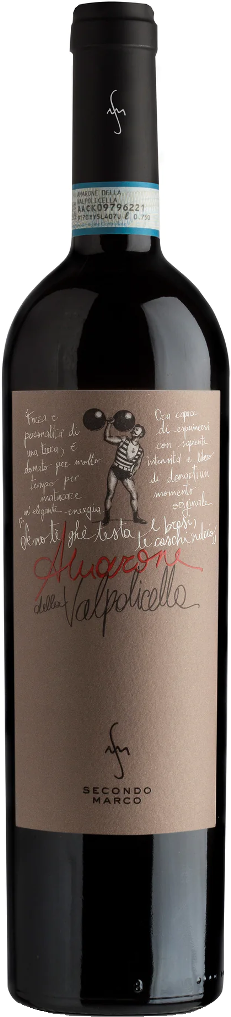 AMARONE DELLA
VALPOLICELLA
AACK09796221
0.750
Forza e
personalità di
una terra, è
donato per molto
tempo per
maturare
un'elegante energia
Con capace
di esprimersi
con sapiente
intensità e libero
di donarti un
momento
originale
Se no te ghe testa i brassi
te casca
Amarone
della Valpolicella
SECONDO
MARCO